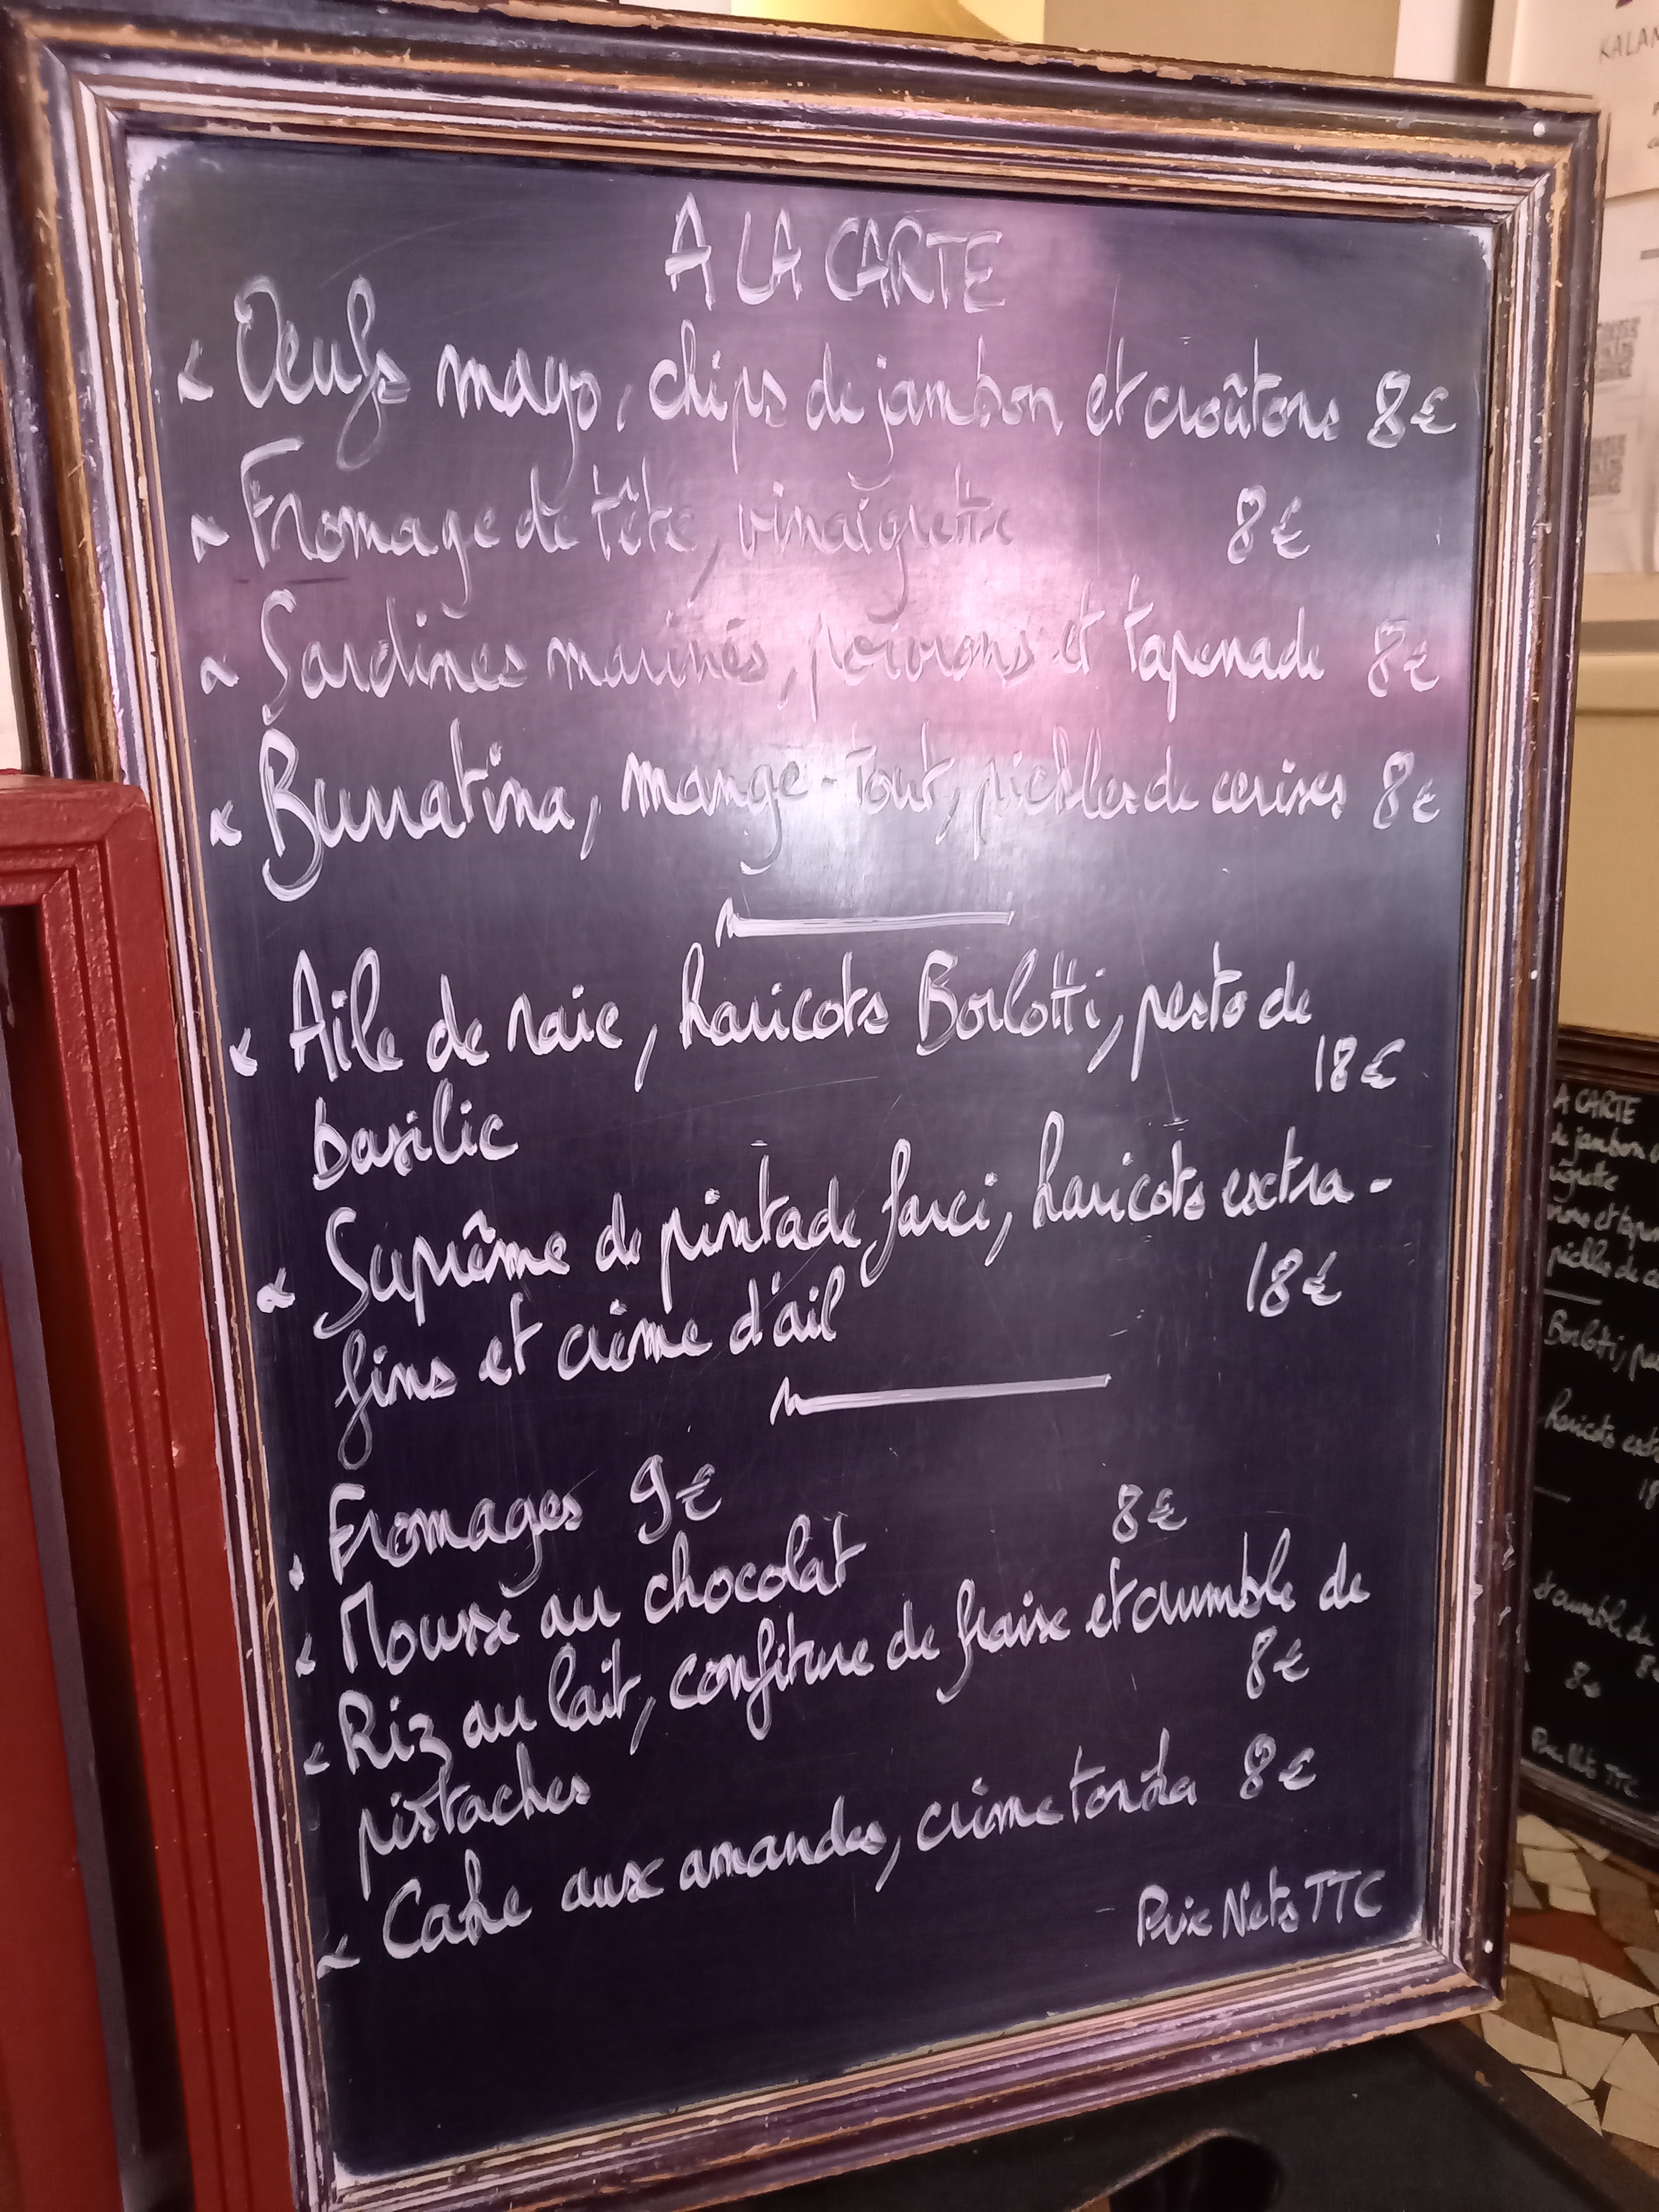 A LA CARTE
Oeufs mayo, chips de jambon et croûtons 8€
Fromage de tête, vinaigrette 8€
Sardines marinés, poivrons et tapenade 8€
Burratina, mange-tout, pickles de cerises 8€
Aile de raie, haricots Borlotti, pesto de
18€
basilic
Suprême de pintade farci, haricots extra-
fins et crème d'ail 18€
Fromages 9€
Mousse au chocolat 8€
Riz au lait, confiture de fraise et crumble de
pistaches 8€
Cake aux amandes, crème tonka 8€
Prix Nets TTC
KALAM
A CARTE
de jambon
igrette
et tap
pickles de c
Borlotti, pe
haricots ext
18
crumble de
8€
8€
Prix Nets TTC